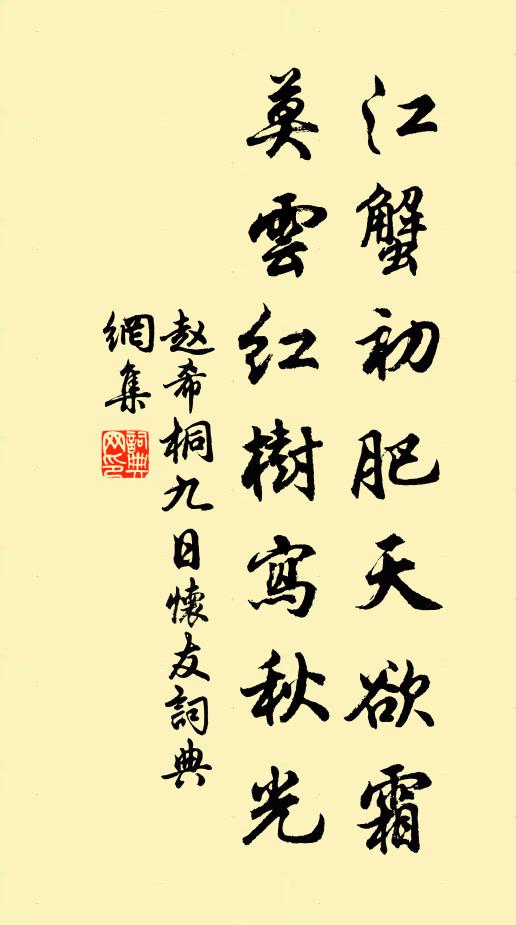 江蟹初肥天欲霜
莫雲紅樹寫秋光
赵希桐九日懷友詞典
網集
詞典
网印